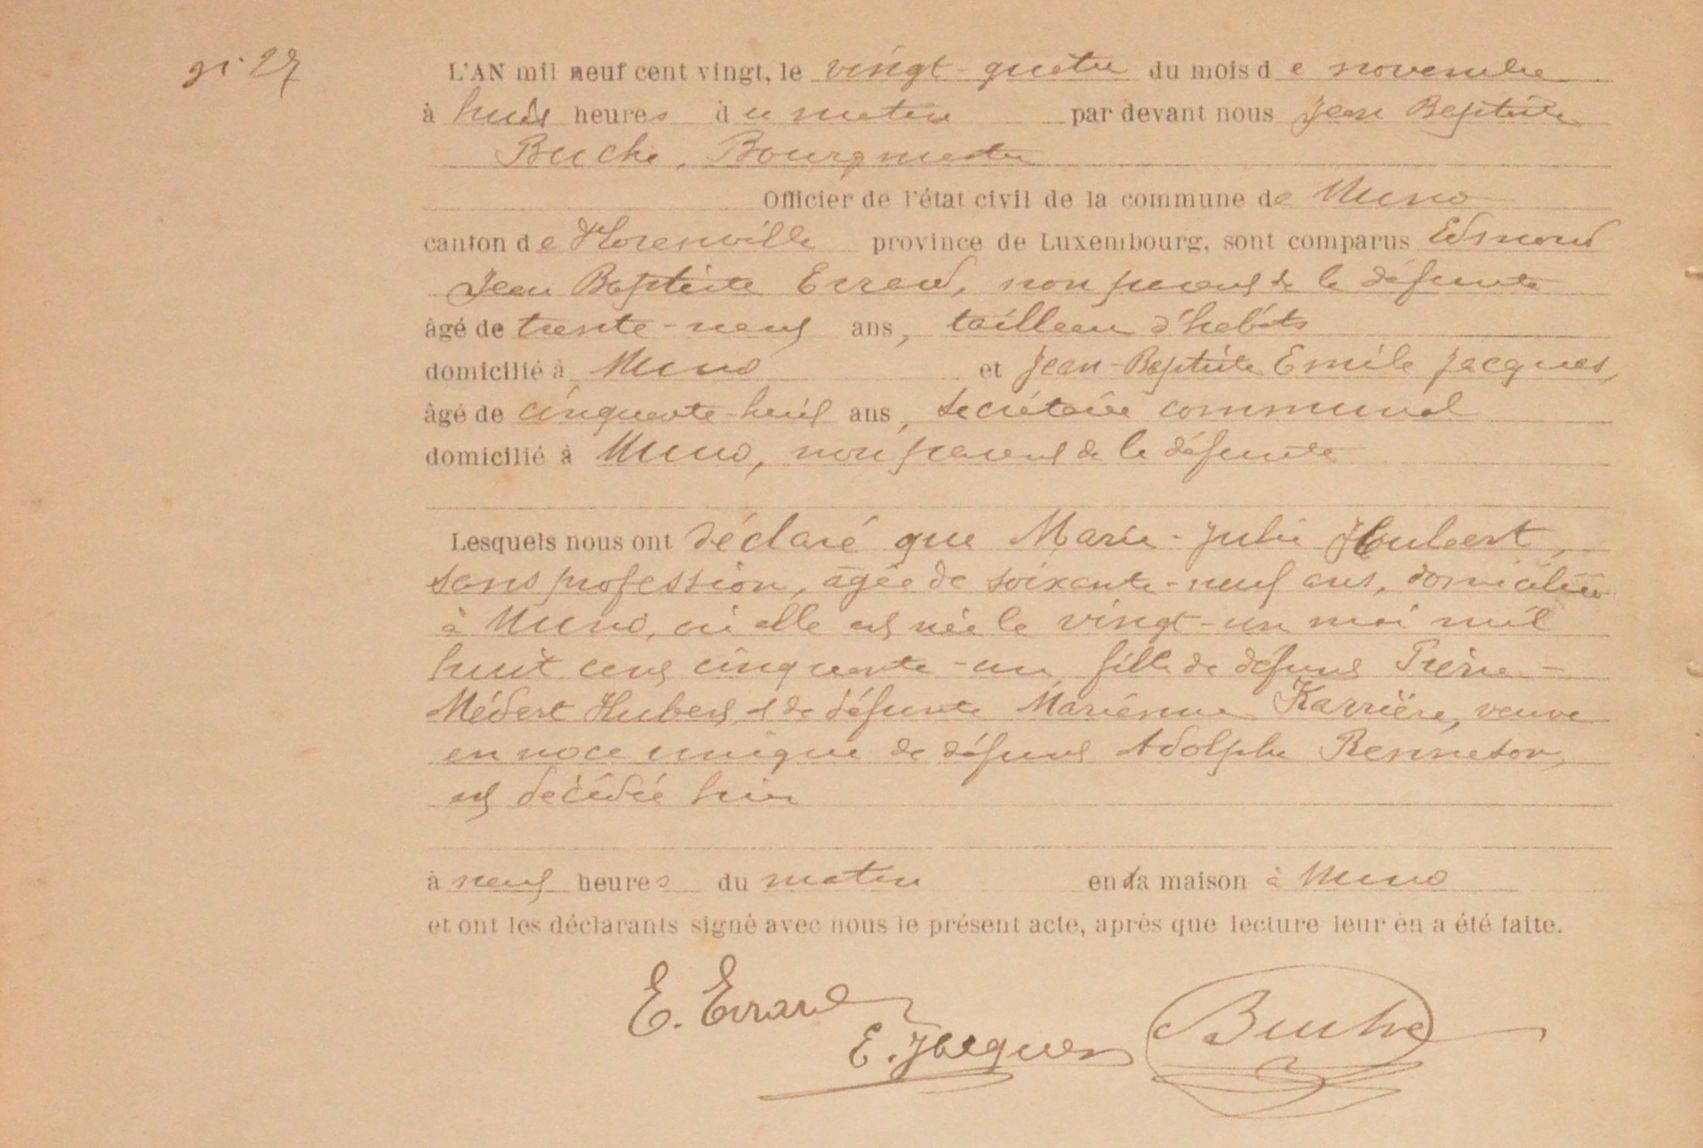 n° 27
L'AN mil neuf cent vingt, le vingt-quatre du mois de novembre
à huit heures du matin par devant nous Jean Baptiste
Buche, Bourgmestre
Officier de l'état civil de la commune de Muno
canton de Florenville province de Luxembourg, sont comparus Edmond
Jean Baptiste Errard, non parent de la défunte
âgé de trente-neuf ans, tailleur d'habits
domicilié à Muno et Jean-Baptiste Emile Jacques,
âgé de cinquante-huit ans, secrétaire communal
domicilié à Muno, non parent de la défunte
Lesquels nous ont déclaré que Marie-Julie Hubert,
sans profession, agée de soixante-neuf ans, domiciliée
à Muno, où elle est née le vingt-un mai mil
huit cent cinquante-un, fille de défunt Pierre-
Médert Hubert et de défunte Marienne Karrière, veuve
en noce unique de défunt Adolphe Renneson,
est décédée hier
à neuf heures du matin en sa maison à Muno
et ont les déclarants signé avec nous le présent acte, après que lecture leur en a été faite.
E. Errard
E. Jacques Buche